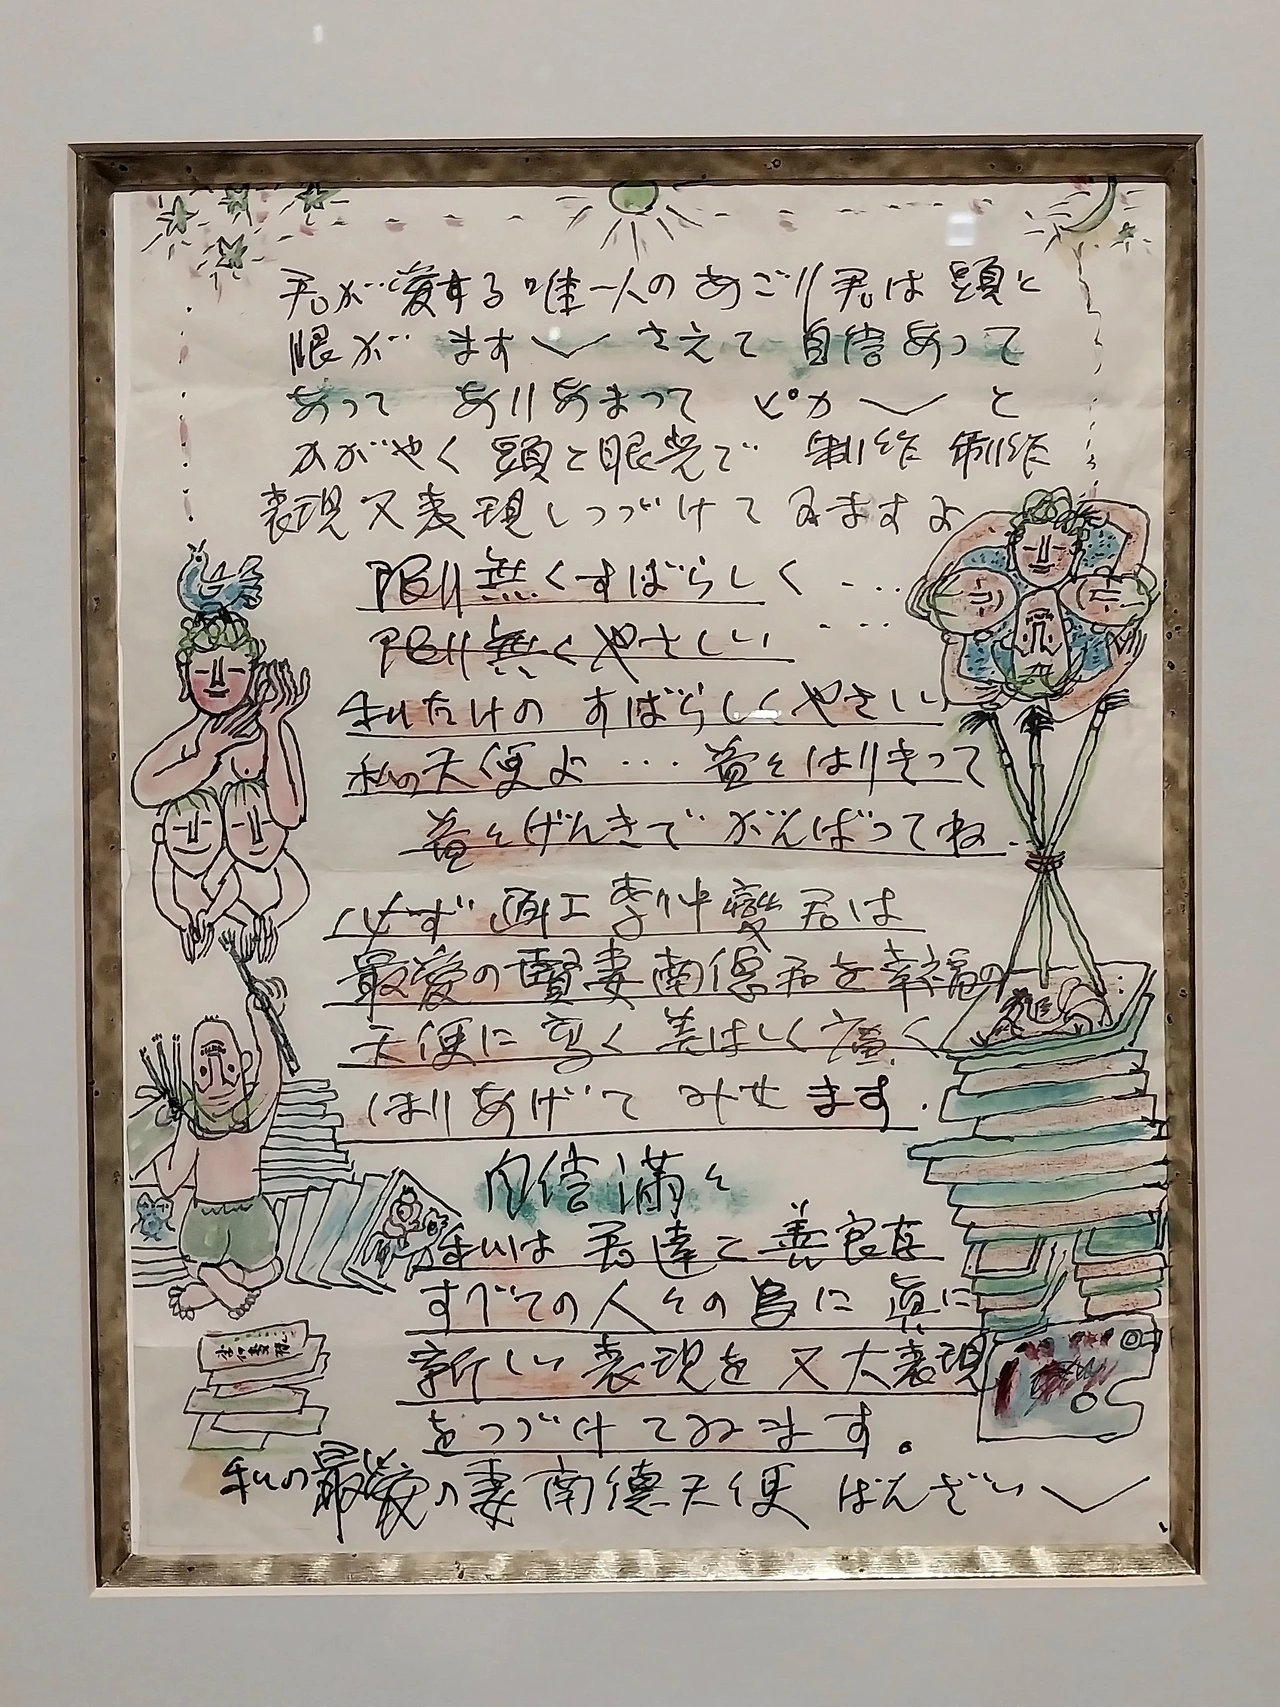 君が愛する唯一人のあごり君は頭と
眼がます〱さえて自信あって
あってありあまってピカ〱と
かがやく頭と眼光で 制作 制作
表現又表現しつづけてみますよ
限り無くすばらしく・・・
限り無くやさしい・・・
私だけのすばらしくやさしい
私の天使よ・・・益々はりきって
益々げんきでがんばってね.
必ず画工李仲燮君は
最愛の賢妻南徳君を幸福の
天使に高く美はしく広く
ほりあげてみせます.
自信満々
私は君達と善良な
すべての人々の為に真に
新しい表現を又大表現
をつづけてみます。
私の最愛の妻南徳天使ばんざい〱